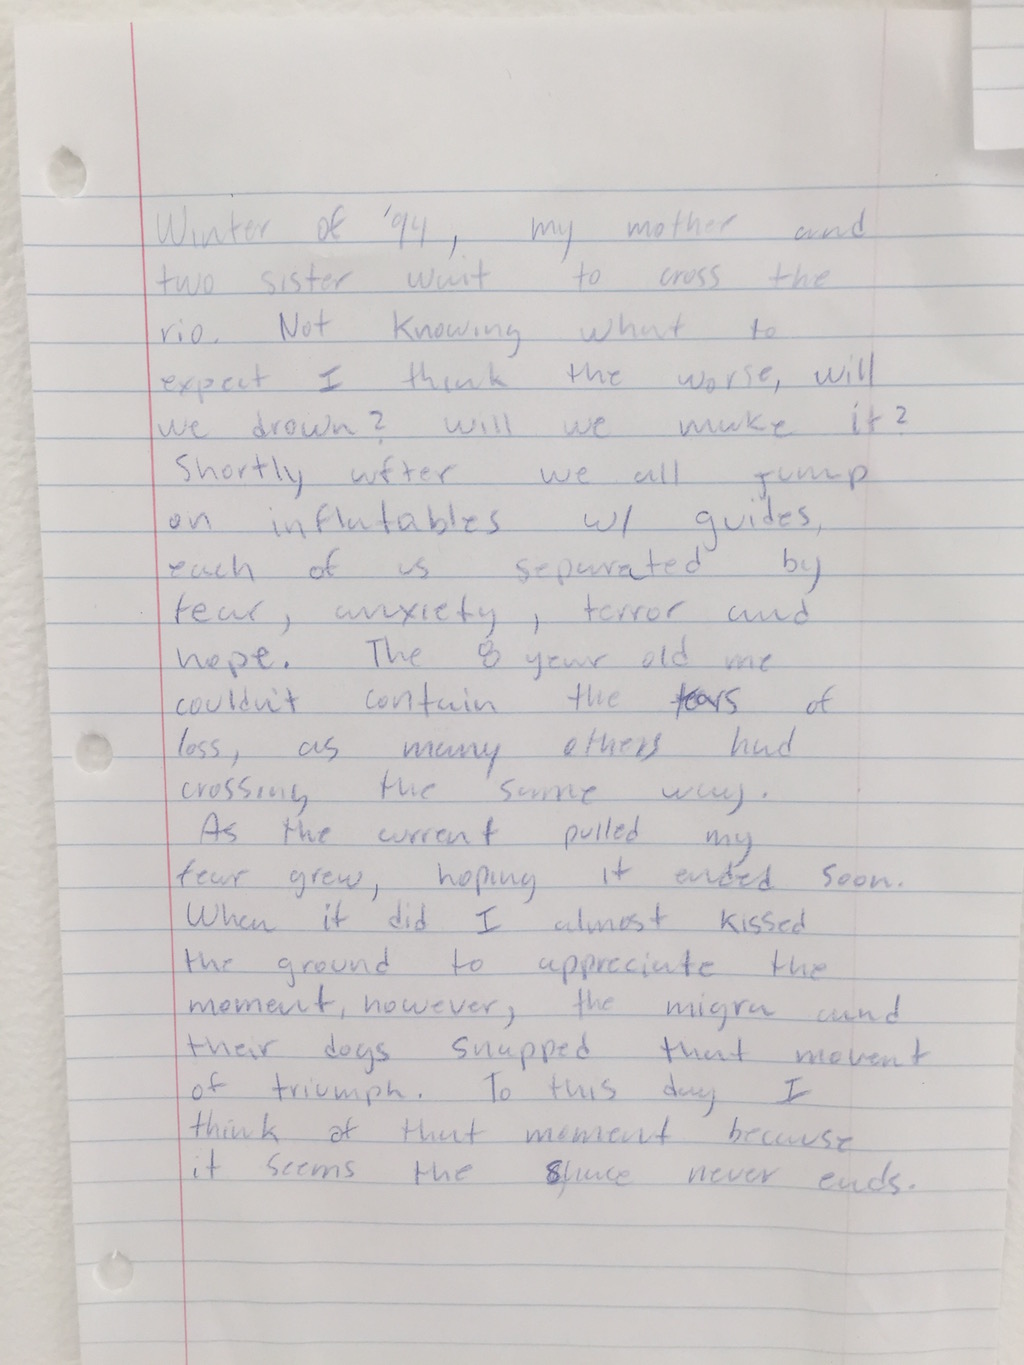 Winter of '94, my mother and
two sister wait to cross the
rio. Not knowing what to
expect I think the worse, will
we drown? will we make it?
Shortly after we all jump
on inflatables w/ guides,
each of us separated by
fear, anxiety, terror and
hope. The 8 year old me
couldn't contain the tears of
loss, as many others had
crossing the same way.
As the current pulled my
fear grew, hoping it ended soon.
When it did I almost kissed
the ground to appreciate the
moment, however, the migra and
their dogs snapped that movent
of triumph. To this day I
think of that moment because
it seems the space never ends.